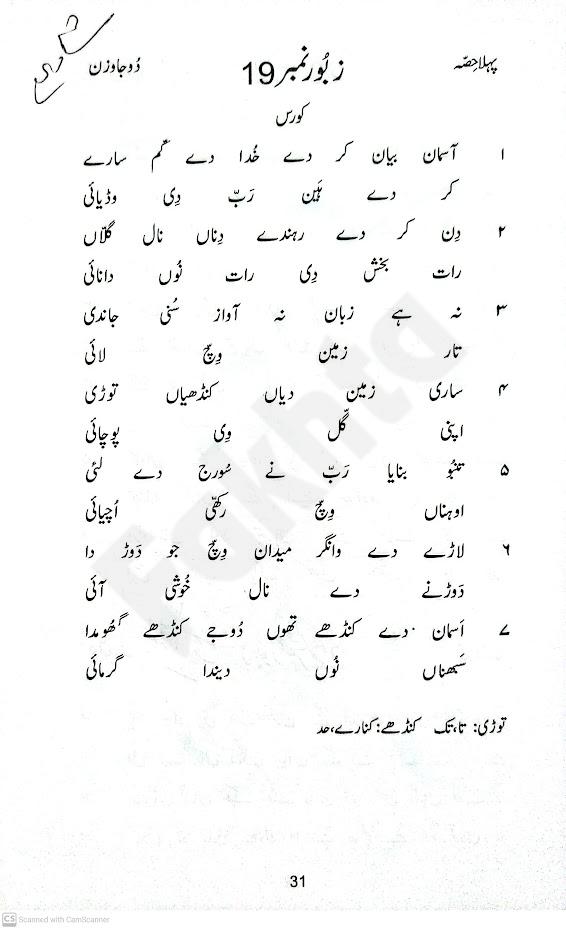 پہلا حِصّہ زبُور نمبر 19 دُوجا وزن
کورس
۱ آسمان بیان کر دے خُدا دے کم سارے
کر دے ہَین رَبّ دِی وڈیائی
۲ دِن کر دے رہندے دِناں نال گلاّں
رات بخش دِی رات نُوں دانائی
۳ نہ ہے زبان نہ آواز سُنی جاندی
تار زمین وِچ لائی
۴ ساری زمین دیاں کنڈھیاں توڑی
اپنی گلّ وی پوچائی
۵ تنبُو بنایا رَبّ نے سُورج دے لئی
اوہناں وِچ رکھی اُچیائی
۶ لاڑے دے وانگر میدان وِچ جو دَوڑ دا
دَوڑنے دے نال خُوشی آئی
۷ اَسمان دے کنڈھے تھوں دُوجے کنڈھے گھُومدا
سَبھناں نُوں دیندا گرمائی
توڑی: تا، تک کنڈھے: کنارے، حد
Fakhta
31
CS Scanned with CamScanner